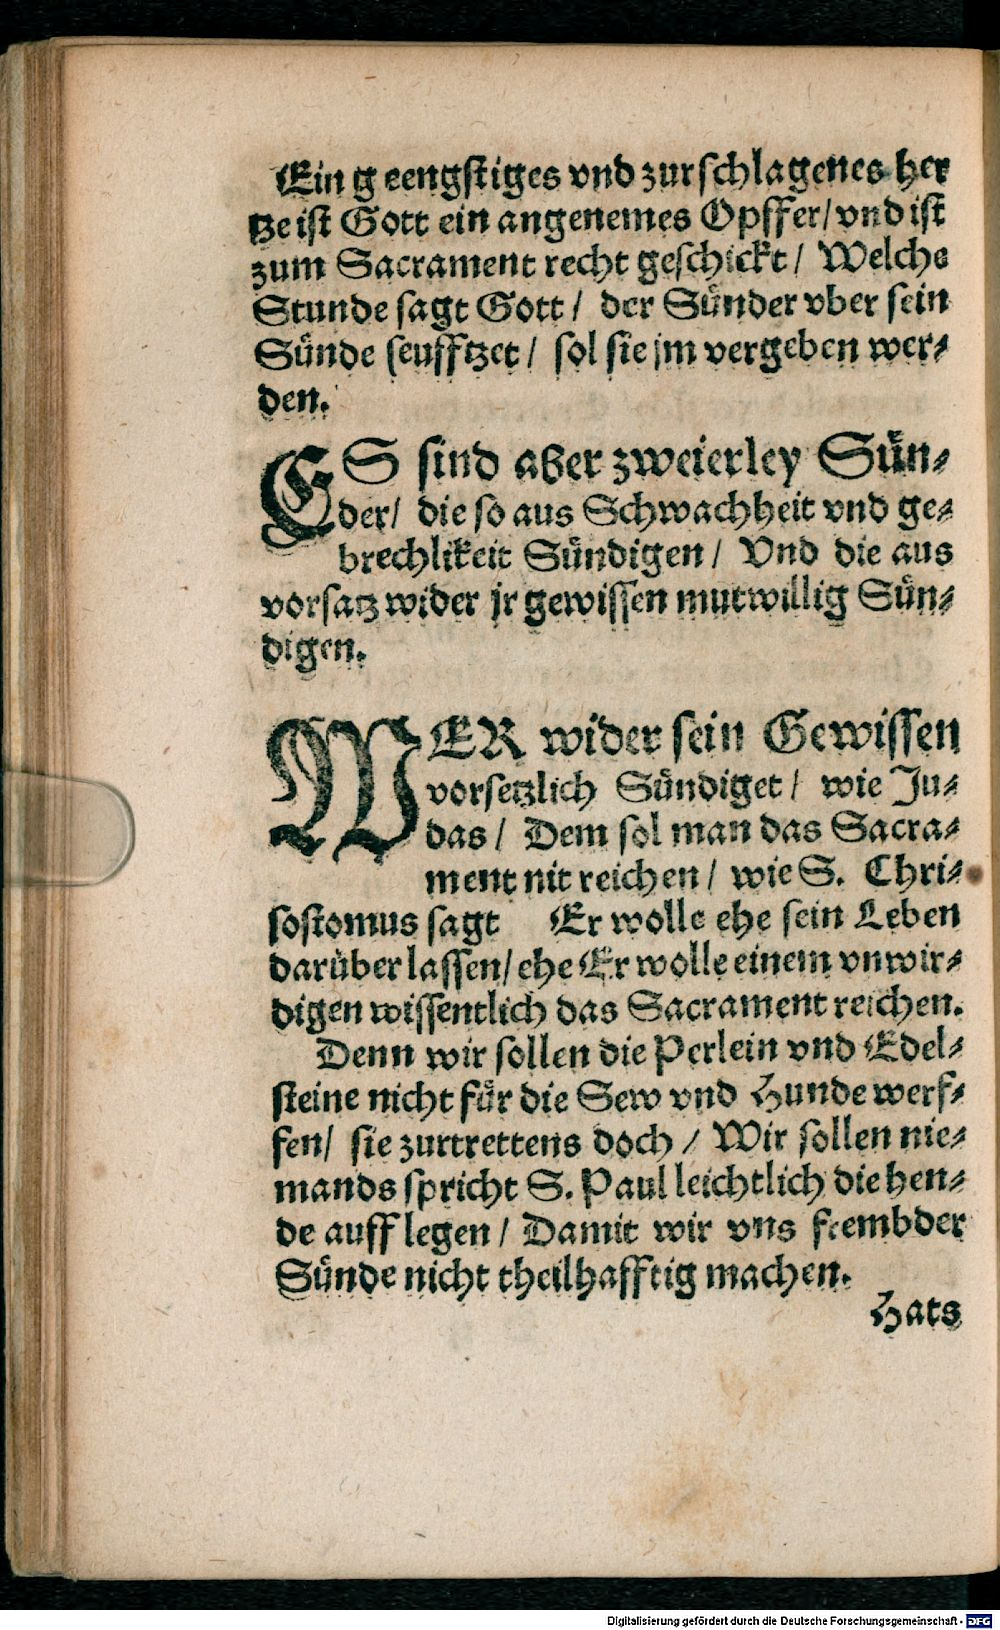 Ein g eengstiges vnd zurschlagenes her
tze ist Gott ein angenemes Opffer/ vnd ist
zum Sacrament recht geschickt/ Welche
Stunde sagt Gott/ der Sünder vber sein
Sünde seufftzet/ sol sie jm vergeben wer⸗
den.
ES sind aber zweierley Sün⸗
der/ die so aus Schwachheit vnd ge⸗
brechlikeit Sündigen/ Vnd die aus
vorsatz wider jr gewissen mutwillig Sün⸗
digen.
WER wider sein Gewissen
vorsetzlich Sündiget/ wie Ju⸗
das/ Dem sol man das Sacra⸗
ment nit reichen/ wie S. Chri⸗
sostomus sagt Er wolle ehe sein Leben
darüber lassen/ ehe Er wolle einem vnwir⸗
digen wissentlich das Sacrament reichen.
Denn wir sollen die Perlein vnd Edel⸗
steine nicht für die Sew vnd Hunde werf⸗
fen/ sie zurtrettens doch/ Wir sollen nie⸗
mands spricht S. Paul leichtlich die hen⸗
de auff legen/ Damit wir vns frembder
Sünde nicht theilhafftig machen.
Hats
Digitalisierung gefördert durch die Deutsche Forschungsgemeinschaft - DFG